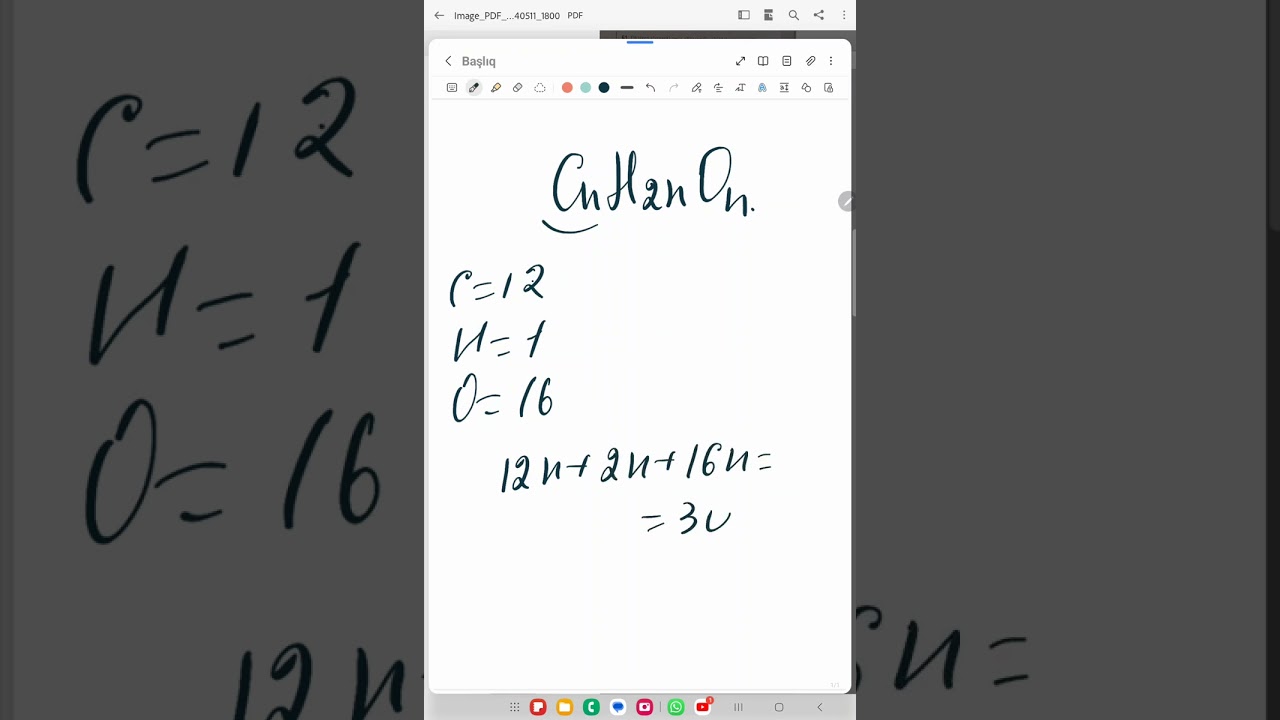 Image_PDF_...40511_1800 PDF
Başlıq
CnH2nOn.
C=12
H=1
O=16
12n+2n+16n=
=30
1/1